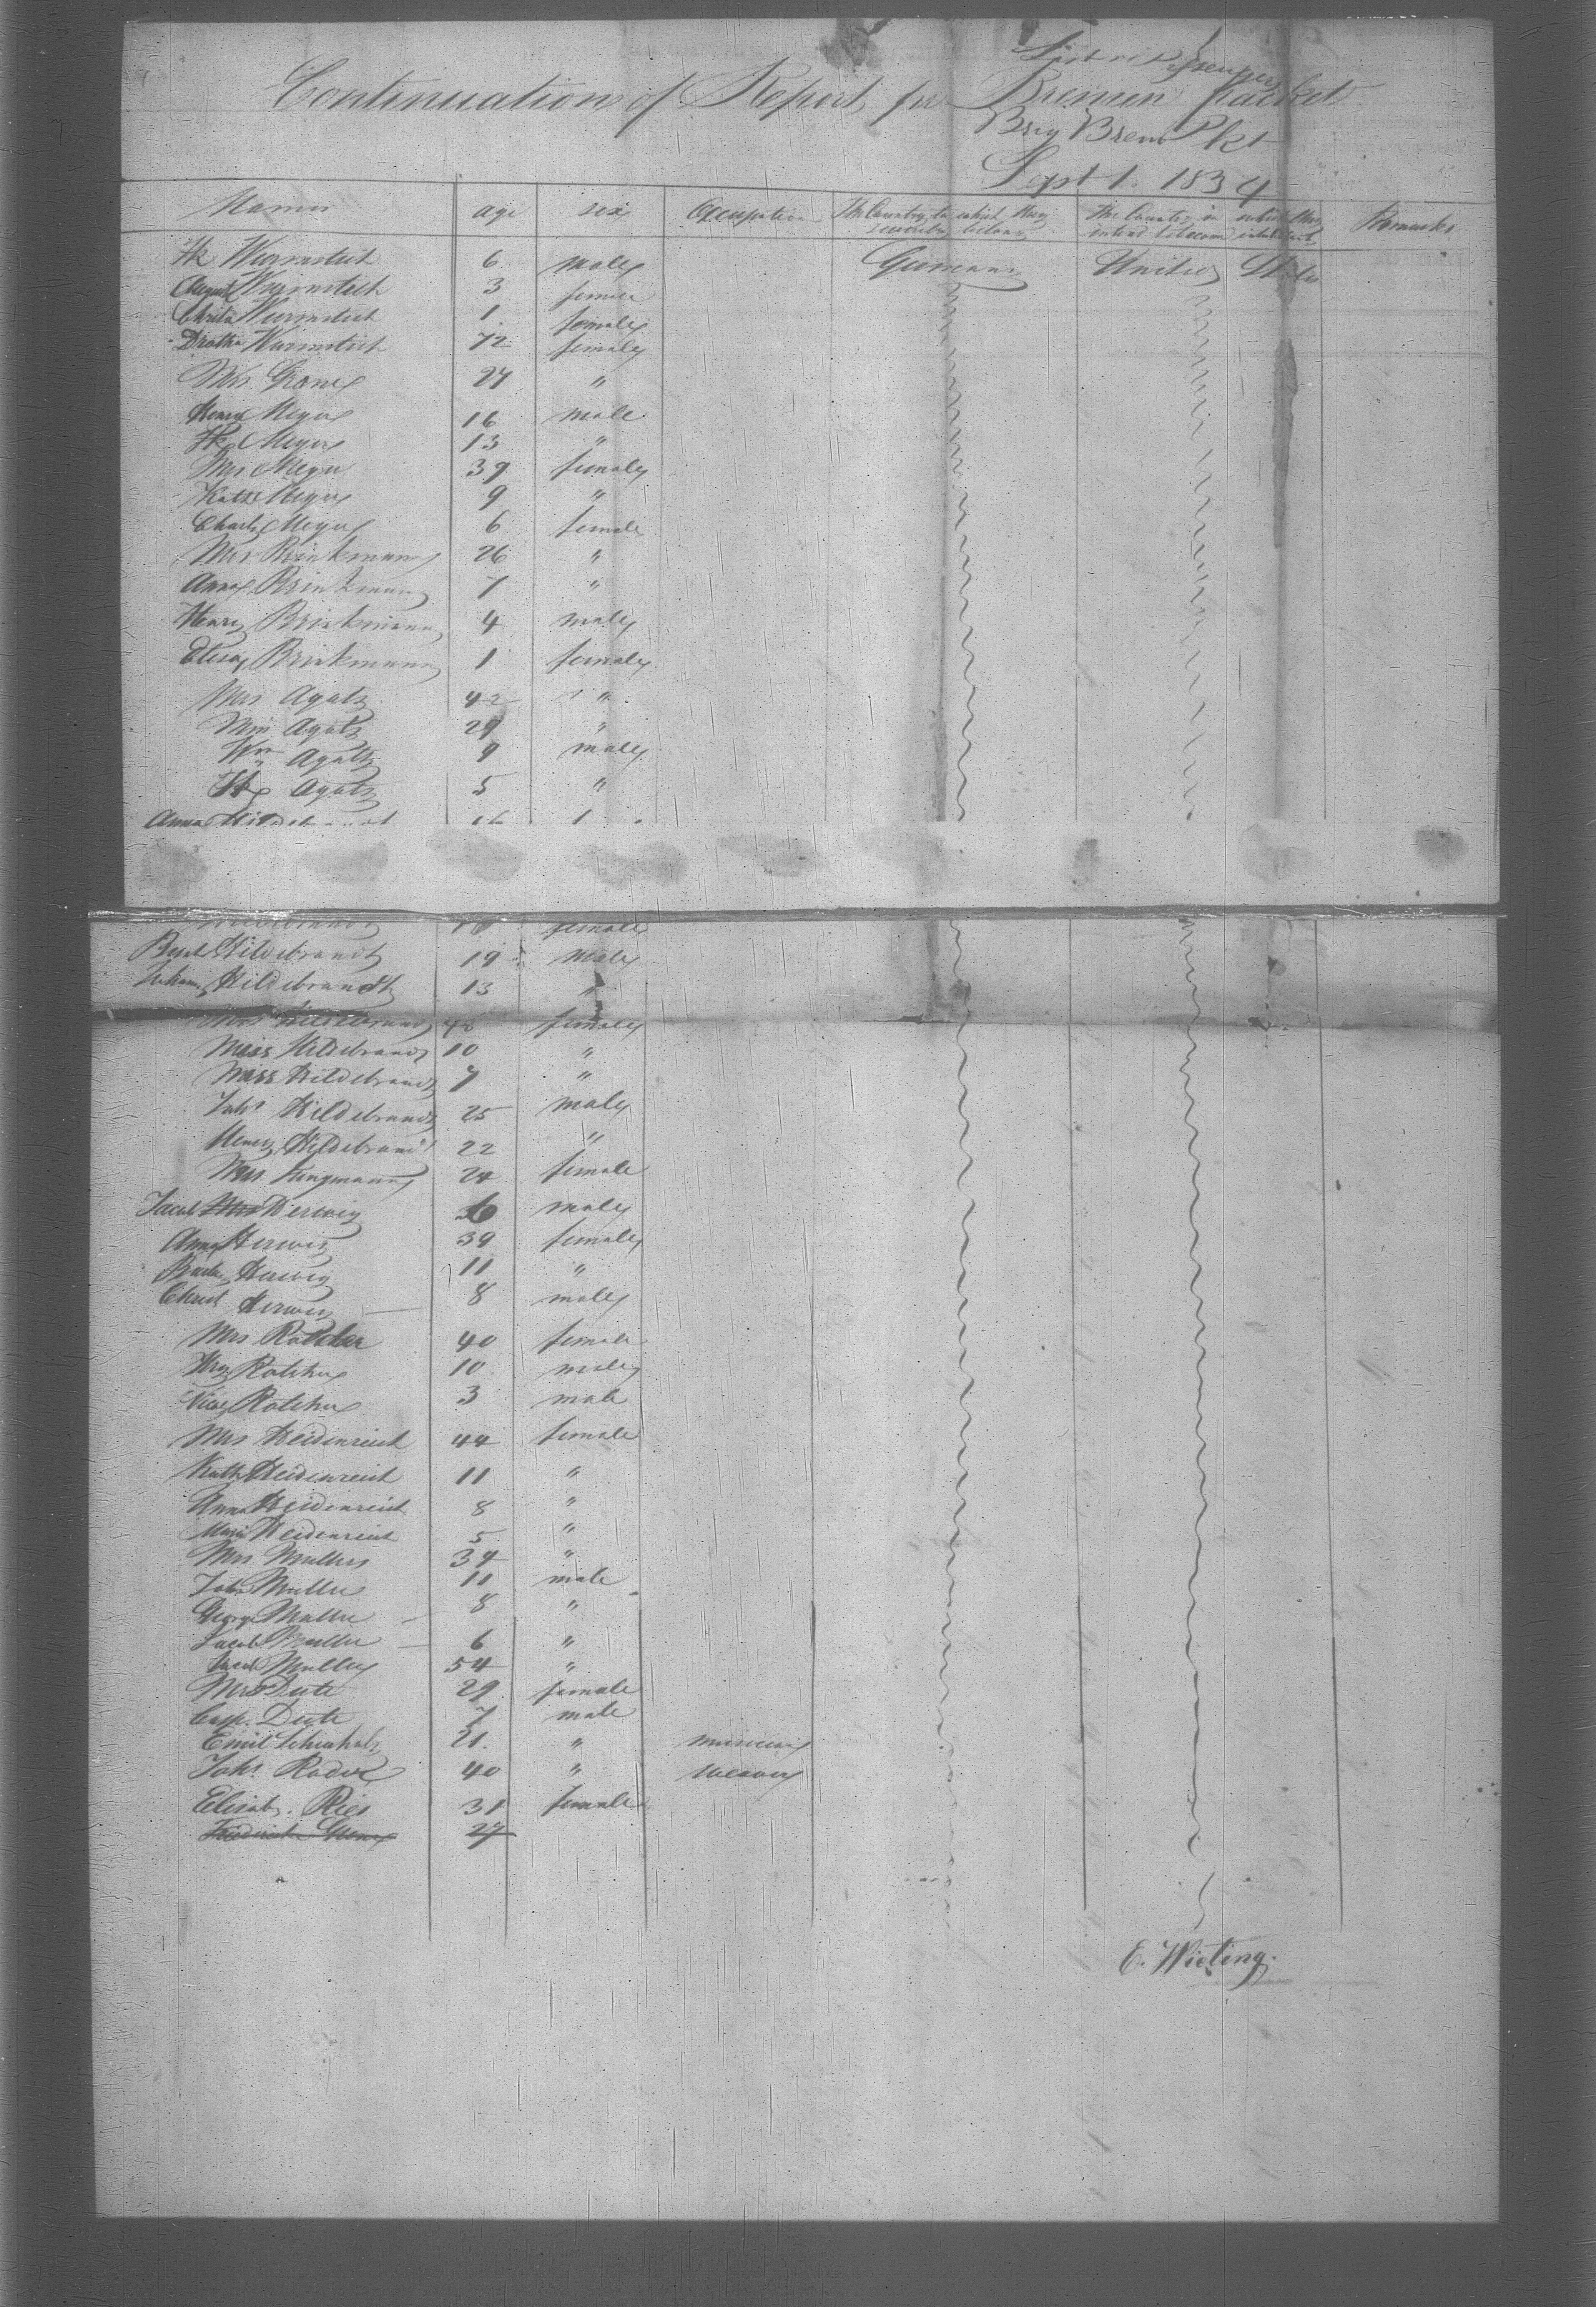 List of Passengers
Continuation of Report for Bremen Packet
Brig Brem Pkt
Sept 1. 1834
Names age sex Occupation The Country to which they severally belong The Country in which they intend to become inhabitants Remarks
Fk Wurmstich 6 male Germany United States
August Wurmstich 3 female
Christa Wurmstich 1 female
Drotha Wurmstich 72 female
Mrs Grone 27 "
Henry Meyer 16 male
Fk Meyer 13 "
Mrs Meyer 39 female
Kath Meyer 9 "
Charls Meyer 6 female
Mrs Brinkmann 26 "
Anna Brinkmann 7 "
Henry Brinkmann 4 male
Elisa Brinkmann 1 female
Mrs Agatz 42 "
Mm Agatz 29 "
Wm Agatz 9 male
Fk Agatz 5 "
Anna Hildebrandt 16
Hildebrandt female
Hildebrandt 19 male
Johann Hildebrandt 13 "
Mrs Hildebrandt female
Miss Hildebrandt 10 "
Miss Hildebrandt 7 "
Johs Hildebrandt 25 male
Henry Hildebrandt 22 "
Mrs Kingmann 24 female
Jacob Mrs Herwig male
Anna Herwig 39 female
Herwig 11 "
Christ Herwig 8 male
Mrs Rotcher 40 female
Rotcher 10 male
Rotcher 3 male
Mrs Heidenreich 44 female
Kath Heidenreich 11 "
Anna Heidenreich 8 "
Maria Heidenreich 5 "
Mrs Mullers 34 "
John Muller 11 male
George Muller 8 "
Jacob Muller 6 "
Jacob Muller 54 "
Mrs Dute 29 female
Casp. Dute 7 male
Emil 21. " musician
Johs. Rader 40 " weaver
Elisab. Ries 31 female
Friedericke Grone 27
E. Wieting.